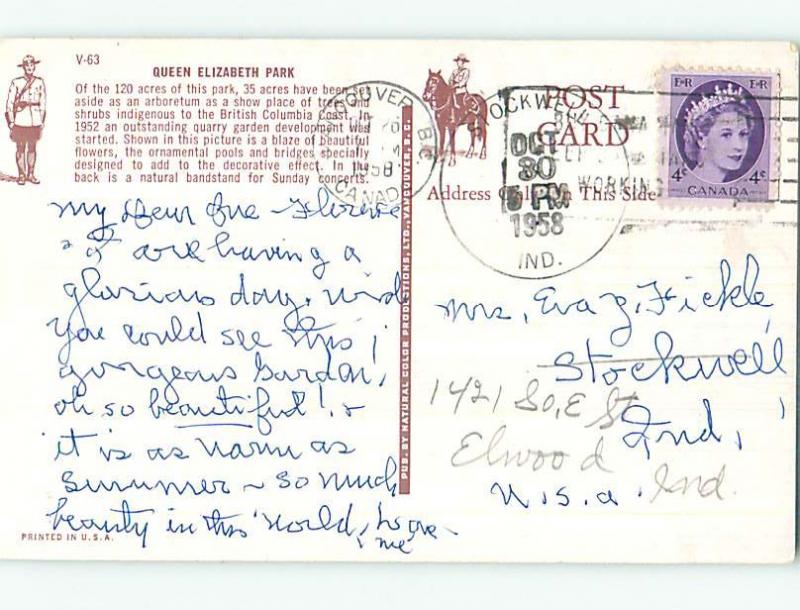 V-63
QUEEN ELIZABETH PARK
Of the 120 acres of this park, 35 acres have been set
aside as an arboretum as a show place of trees and
shrubs indigenous to the British Columbia Coast. In
1952 an outstanding quarry garden development was
started. Shown in this picture is a blaze of beautiful
flowers, the ornamental pools and bridges specially
designed to add to the decorative effect. In the
back is a natural bandstand for Sunday concerts.
My Dear Eva - Florence
& I are having a
glorious day. Wish
you could see this
gorgeous Garden!
Oh so beautiful! &
it is as warm as
summer ~ so much
beauty in this world,
me
PRINTED IN U.S.A.
PUB. BY NATURAL COLOR PRODUCTIONS, LTD., VANCOUVER, B.C.
VANCOUVER B.C.
1958
CANADA
STOCKWELL
OCT
30
PM
1958
IND.
POST
CARD
Address Only on This Side
WORKING
E·R E·R
4¢ 4¢
CANADA
Mrs. Eva Z. Fickle,
Stockwell
Ind.
1421 So. E St
Elwood
Ind.
U.S.A.